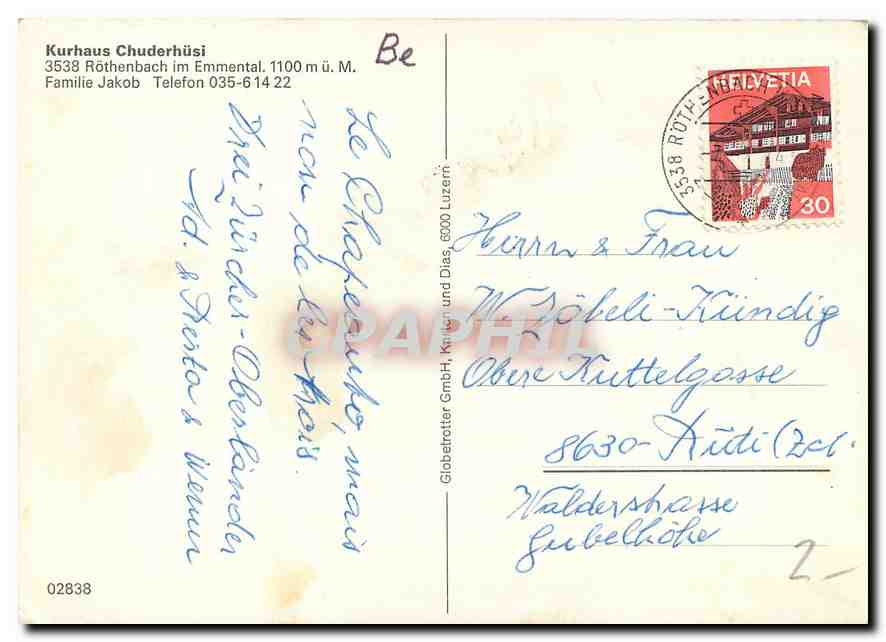 Kurhaus Chuderhüsi
3538 Röthenbach im Emmental. 1100 m ü. M.
Familie Jakob Telefon 035-6 14 22
Be
Le Chaperauto, mais
non de les trois.
Drei Zürcher-Oberländer
Ad. &Resta & Werner
02838
Globetrotter GmbH, Karten und Dias, 6000 Luzern
HELVETIA
30
3538 RÖTHENBACH
Herrn & Frau
W. Zöbeli-Kündig
Obere Kuttelgasse
8630- Rüti (Zch.
Walderstrasse
Gubelhöhe
2-
CPAPHIL